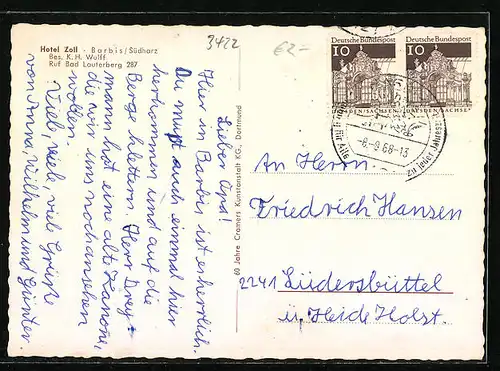 Hotel Zoll - Barbis/Südharz
Bes. K. H. Wulff
Ruf Bad Lauterberg 287
3422
€2-
Lieber Opa!
Hier in Barbis ist es herrlich.
Du mußt auch einmal hier
herkommen und auf die
Berge klettern. Herr Drey-
mann hat eine alte Kanone,
die wir uns noch ansehen
wollen.
Viele, viele, viel Grüße
von Anna, Wilhelm und Günter.
60 Jahre Cramers Kunstanstalt KG., Dortmund
Deutsche Bundespost
10
DRESDEN/SACHSEN
Deutsche Bundespost
10
DRESDEN/SACHSEN
-6.-9.68-13
für Alle
zu jeder Jahreszeit
An Herrn
Friedrich Hansen
2241 Lüdersbüttel
ü. Heide Holst.